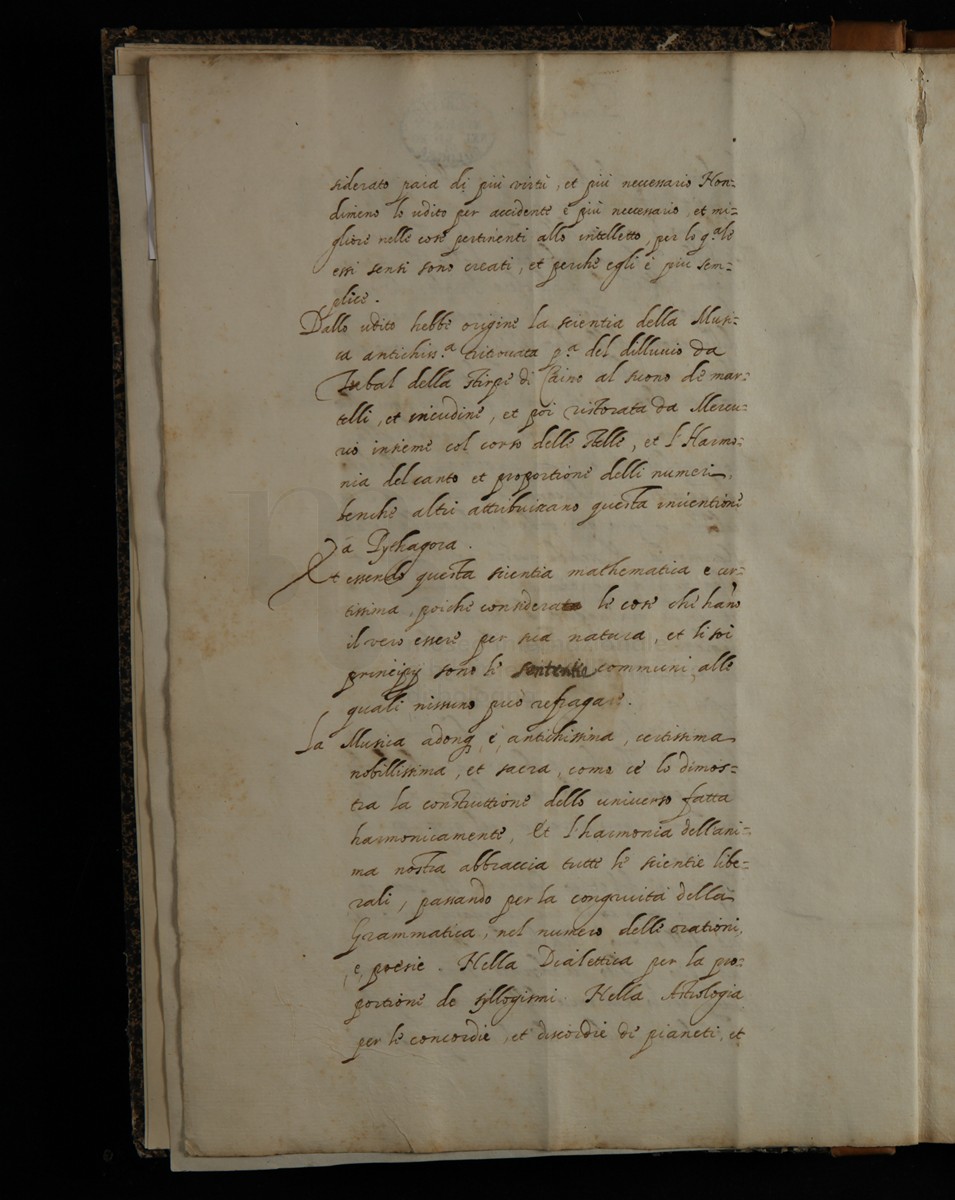 siderato paia di più virtù, et più neccessario Non-
dimeno lo udito per accidente è più necessario, et mi-
gliore nelle cose pertinenti allo intelletto, per lo q.ale
essi sensi sono creati, et perche egli è piu sem-
plice.
Dallo udito hebbe origine la scientia della Musi-
ca antichiss.a ritrovata p.a del dilluvio da
Iubal della stirpe di Caino al suono de mar-
telli, et incudine, et poi ristorata da Mercu-
rio insieme col corso delle stelle, et l'Harmo-
nia del canto et proportione delli numeri,
benche altri attribuiscano questa inventione
a Pythagora.
Et essendo questa scientia mathematica e cer-
tissima, poiche considera le cose che hano
il vero essere per sua natura, et li soi
principij sono le sententie communi, alle
quali nissuno può refragare.
La Musica adonq, è, antichissima, certissima
nobillissima, et sacra, como ce lo dimos-
tra la construttione dello universo fatta
harmonicamente, Et l'harmonia dell'ani-
ma nostra abbraccia tutte le scientie libe-
rali, passando per la congruità della
Grammatica, nel numero delle orationi,
e, poesie. Nella Dialettica per la pro-
portione de syllogismi. Nella Astrologia
per le concordie, et discordie de pianeti, et